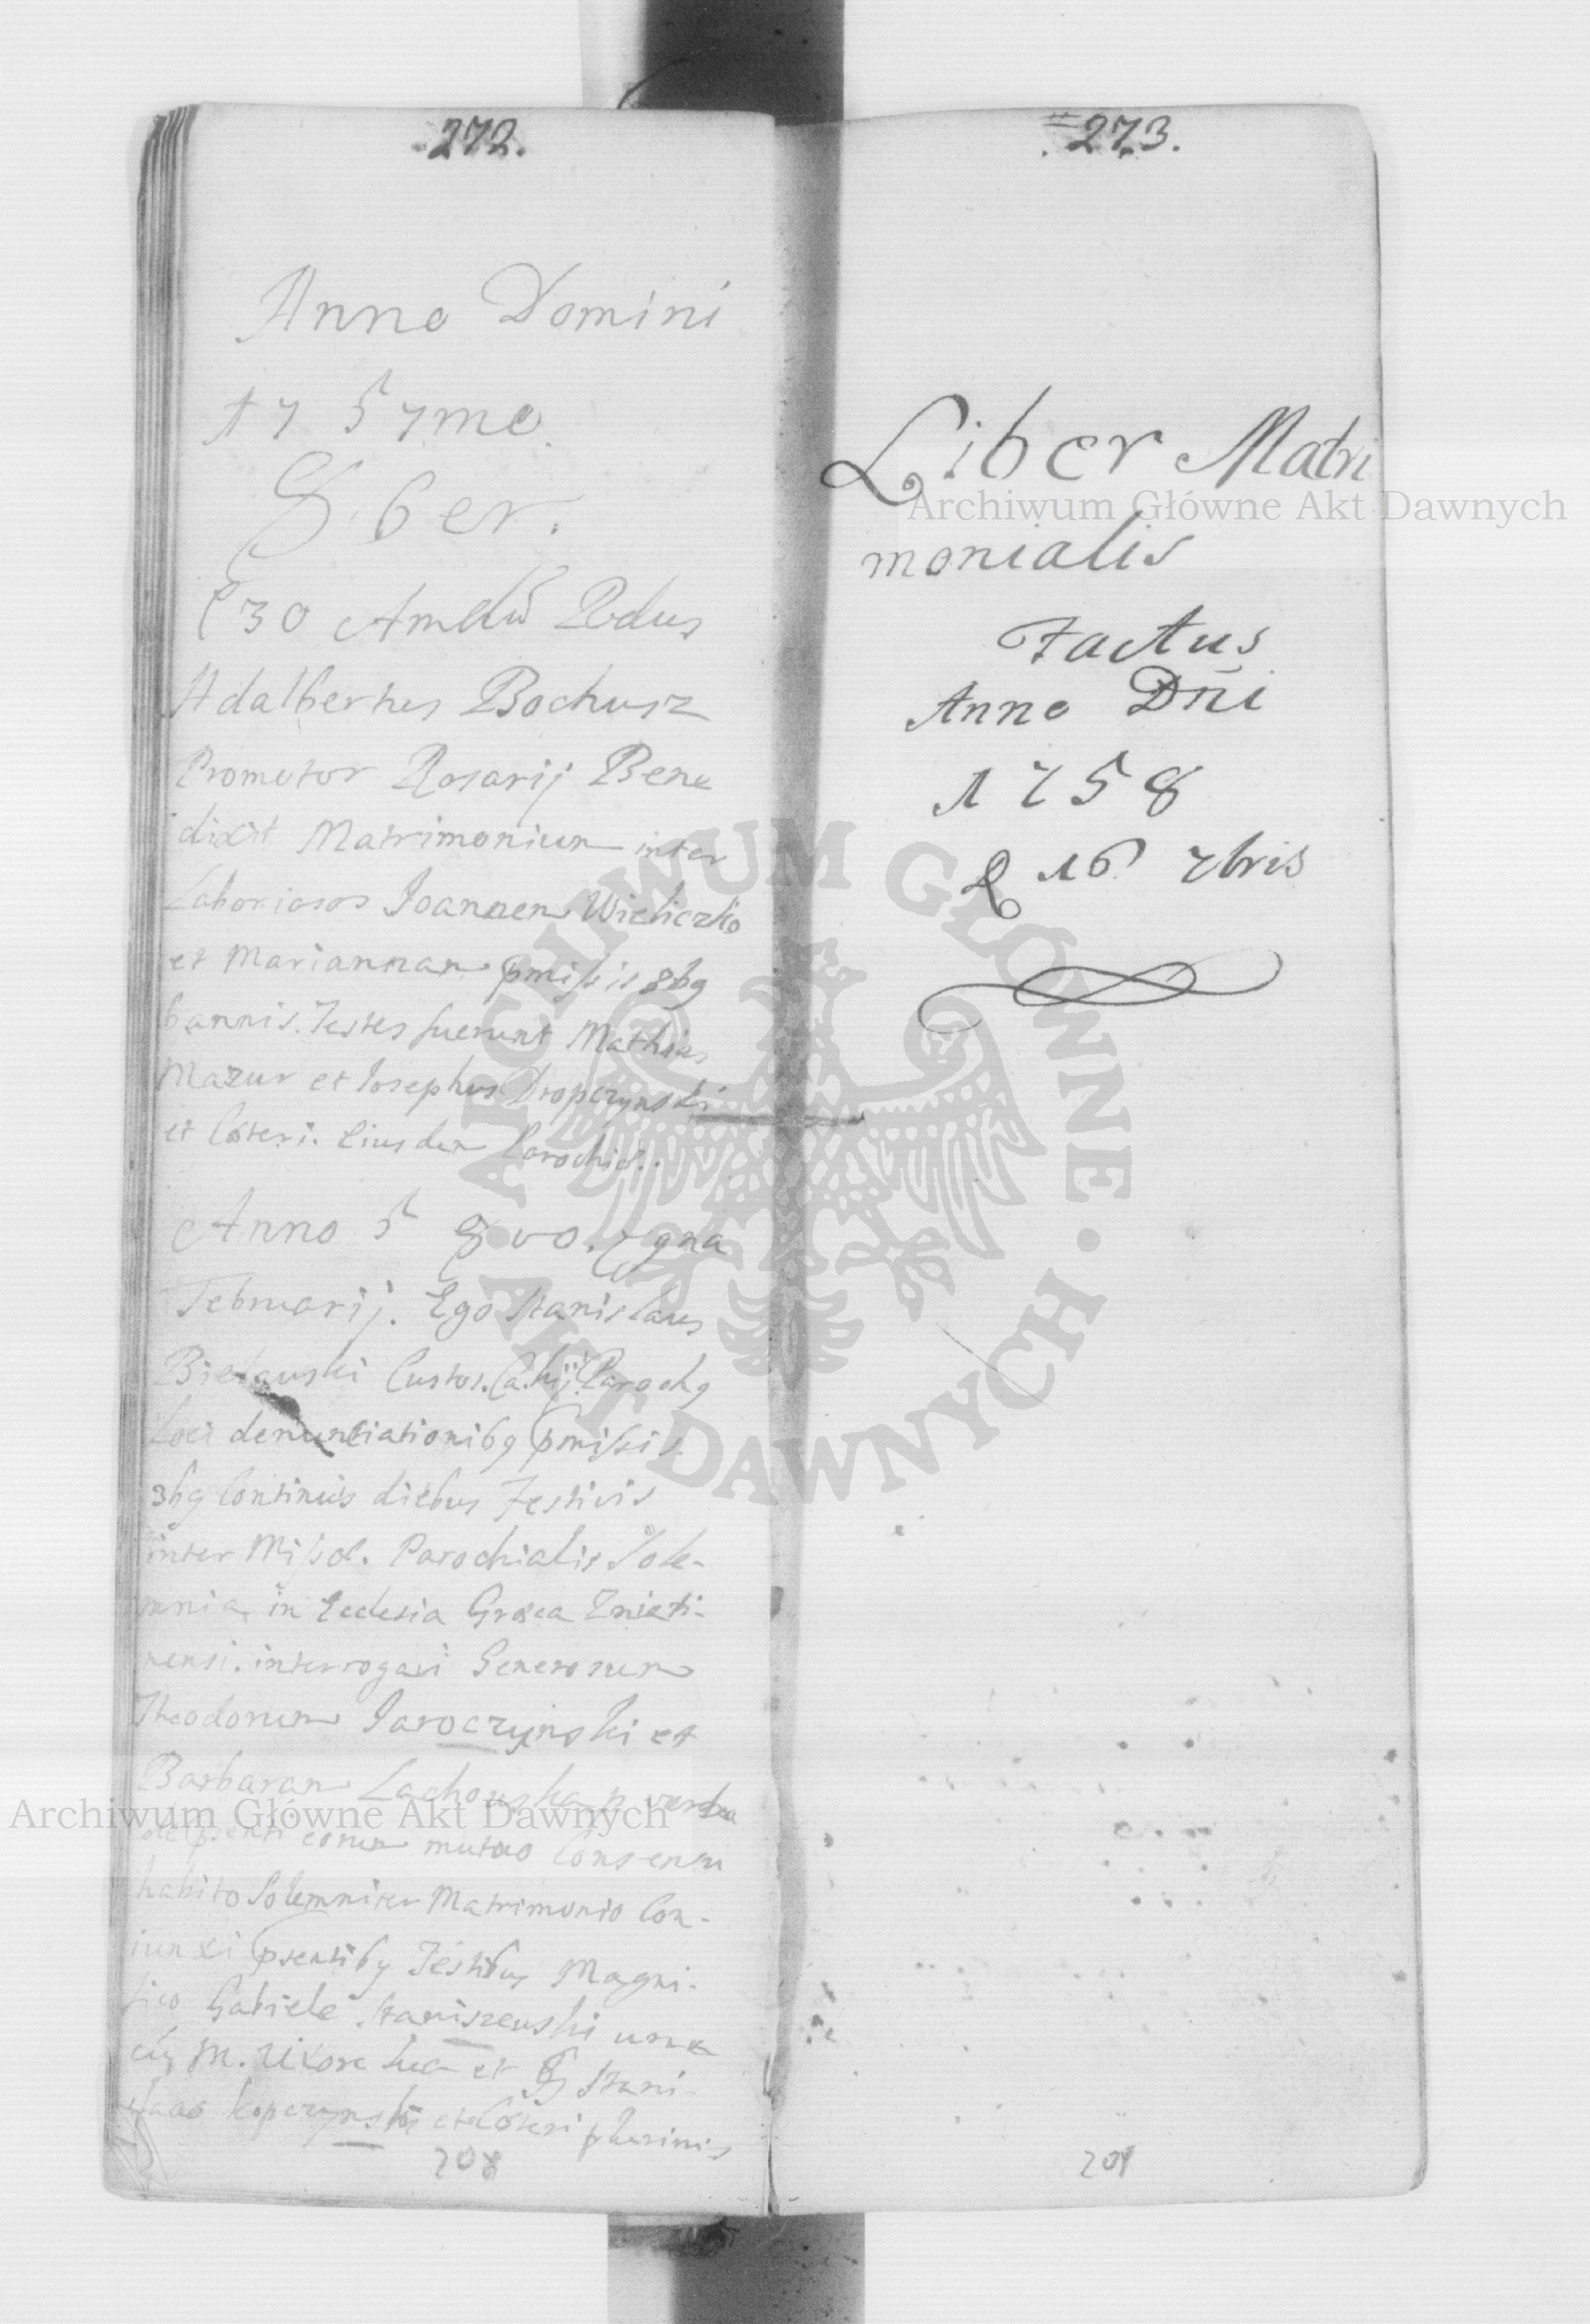 272.
Anno Domini
17 57mo.
8.ber.
30 Amdū Rdus
Adalbertus Bochusz
Promotor Rosarij Bene
dixit Matrimonium inter
Laboriosos Joannem Wieliczko
et Mariannam pmissis 3bg
bannis. Testes fuerunt Mathias
Mazur et Josephus Dropczynski
et Cæteri. Eiusdem Parochiæ.
Anno 5 8vo.
Februarij. Ego Stanislaus
Custos. Parochg
Loci denuntiationibg pmissis
3bg Continuis diebus Festivis
inter Missæ. Parochialis Sole-
mnia in Ecclesia Græca Zniati-
nensi. interrogavi Generosum
Theodorum Jaroczynski et
Barbaram Lachowska p verba
de psenti eorum mutuo Consensu
habito Solemniter Matrimonio Con-
iunxi psentibg Testibus Magni-
fico Gabriele Staniszewski una
cū M. Uxore sua et Stani-
slao Kopczynski et Cæteri plurimis
208
273.
Liber Matri
monialis
Factus
Anno Dni
1758
D 16 7bris
209
Archiwum Główne Akt Dawnych
Archiwum Główne Akt Dawnych
ARCHIWUM GŁÓWNE · AKT DAWNYCH ·